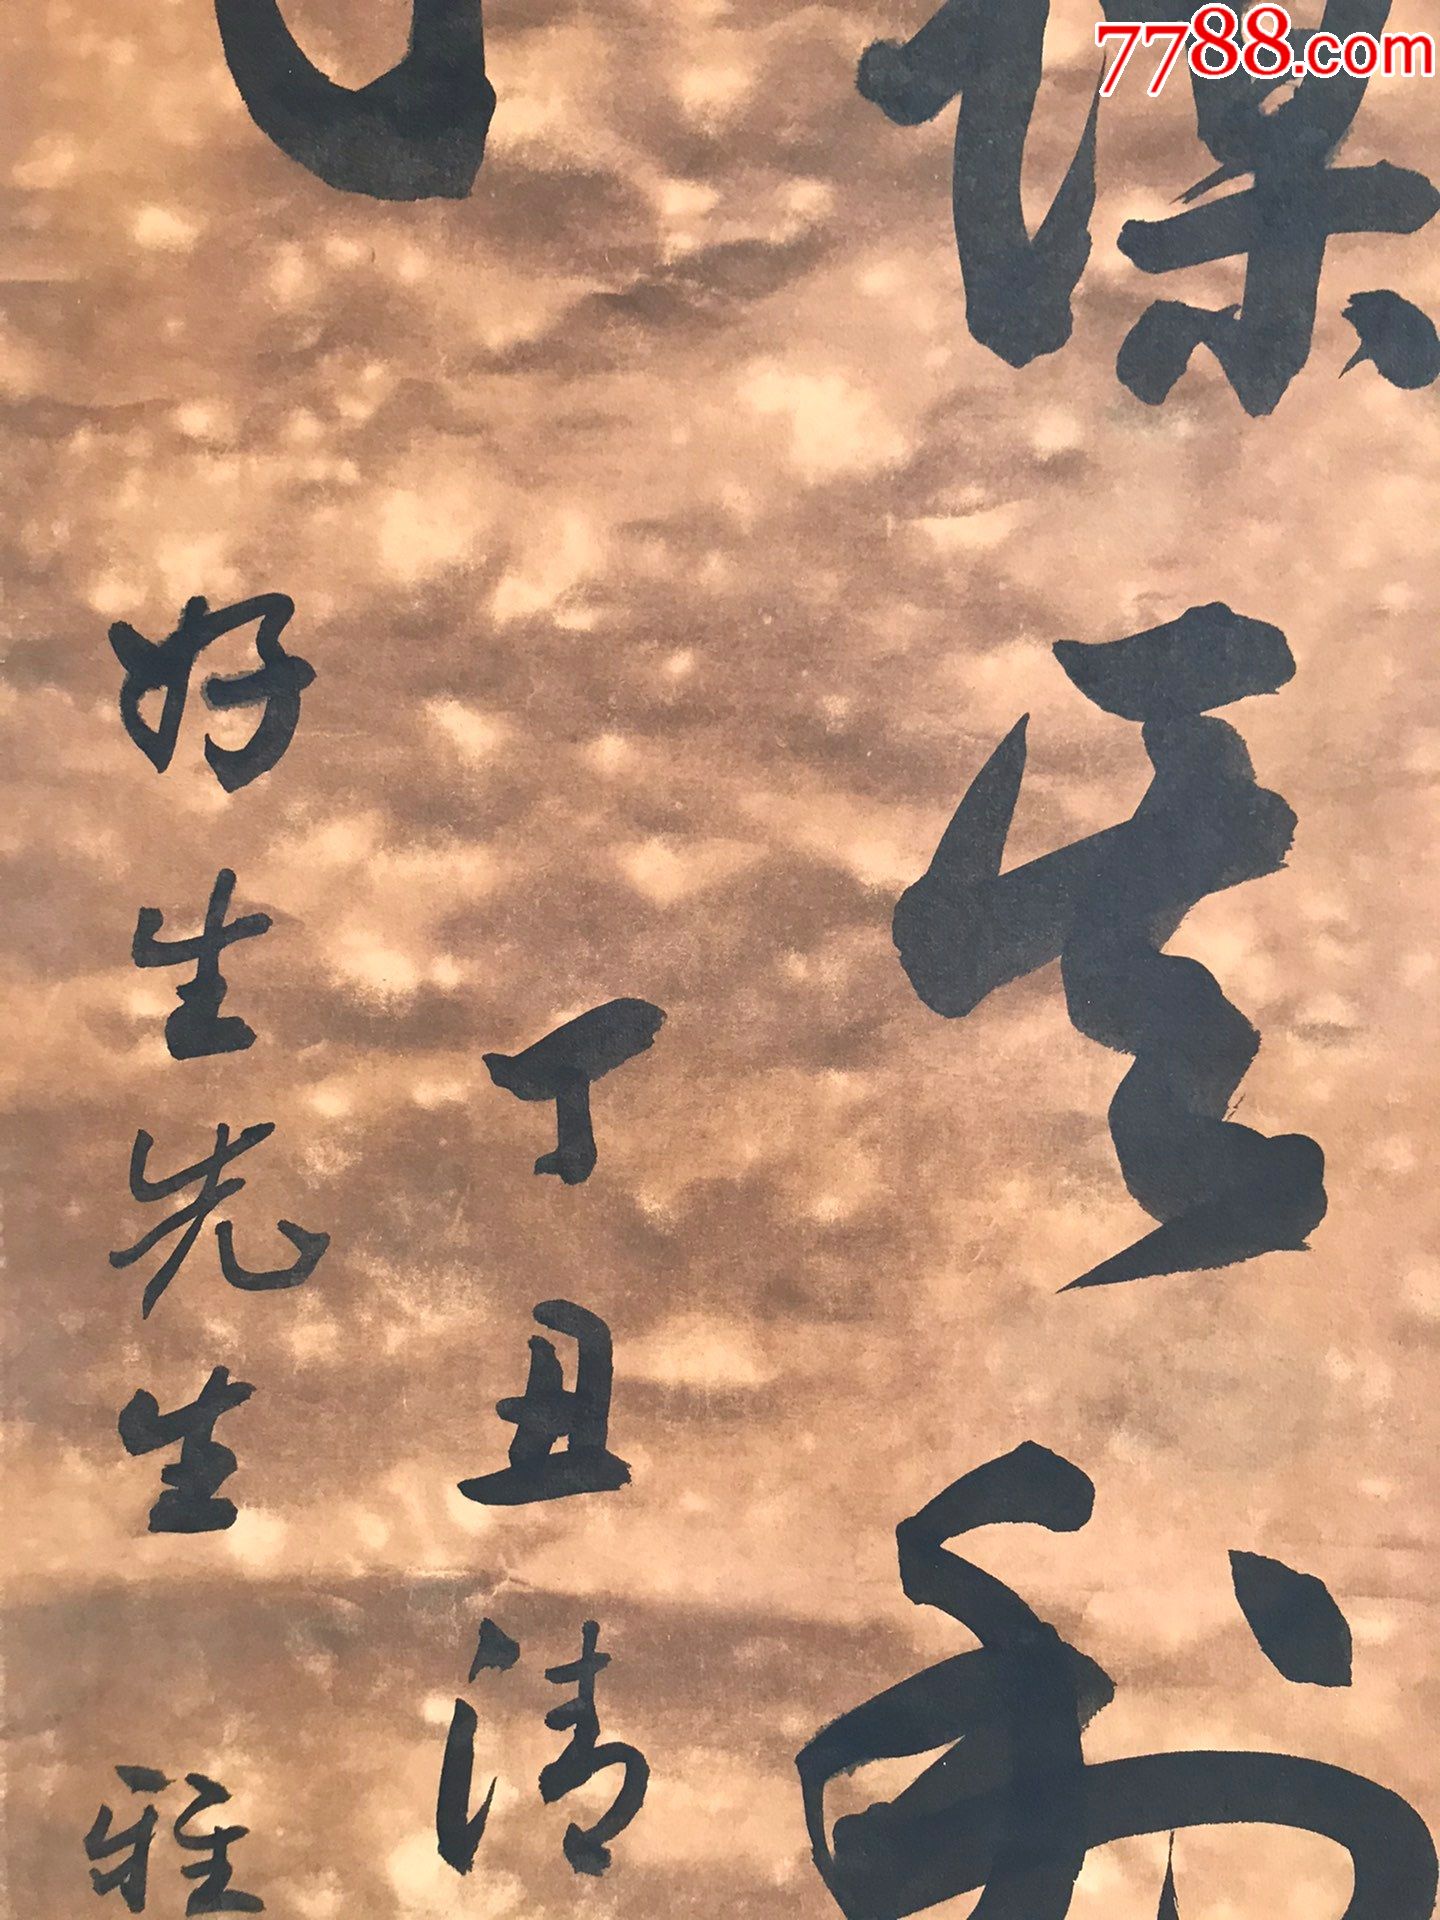 7788.com
謀其利
丁丑清
好生先生雅